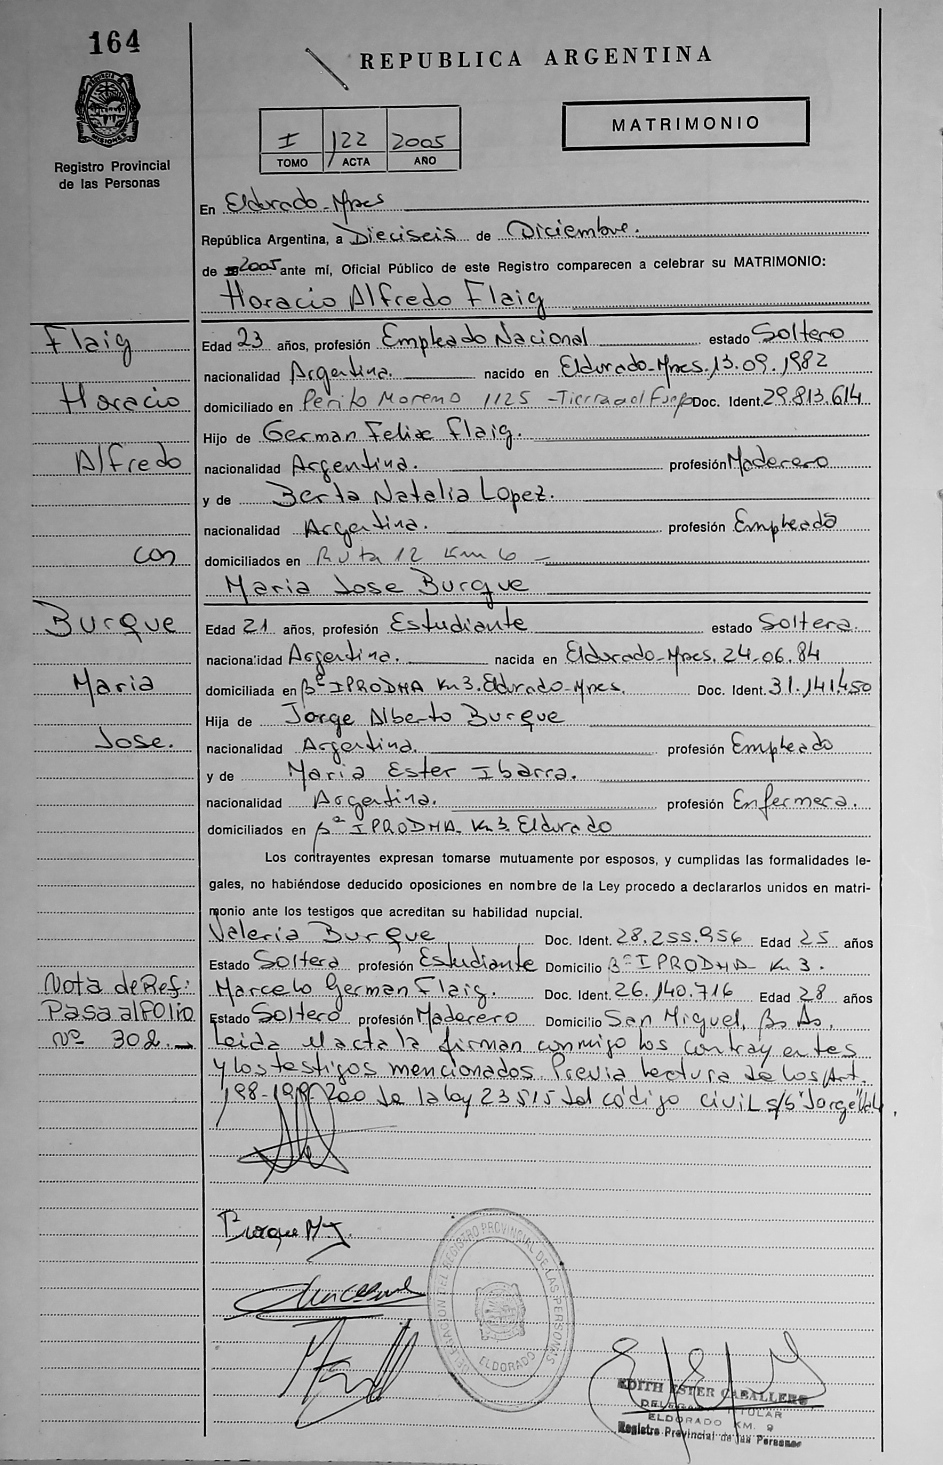 164
REPUBLICA ARGENTINA
MISIONES
Registro Provincial
de las Personas
I 122 2005
TOMO ACTA AÑO
MATRIMONIO
En Eldorado-Mnes
República Argentina, a Dieciseis de Diciembre.
de 2005 ante mí, Oficial Público de este Registro comparecen a celebrar su MATRIMONIO:
Horacio Alfredo Flaig
Flaig
Horacio
Alfredo
con
Burque
Maria
Jose.
Edad 23 años, profesión Empleado Nacional estado Soltero
nacionalidad Argentina. nacido en Eldorado-Mnes. 13.09.1982
domiciliado en Perito Moreno 1125 -Tierra del Fuego Doc. Ident. 29.813.614
Hijo de German Felix Flaig.
nacionalidad Argentina. profesión Maderero
y de Berta Natalia Lopez.
nacionalidad Argentina. profesión Empleada
domiciliados en Ruta 12 Km 6 -
Maria Jose Burque
Edad 21 años, profesión Estudiante estado Soltera.
nacionalidad Argentina. nacida en Eldorado-Mnes. 24.06.84
domiciliada en Bº IPRODHA Km 3. Eldorado-Mnes. Doc. Ident. 31.141.450
Hija de Jorge Alberto Burque
nacionalidad Argentina. profesión Empleado
y de Maria Ester Ibarra.
nacionalidad Argentina. profesión Enfermera.
domiciliados en Bº IPRODHA. Km 3. Eldorado
Los contrayentes expresan tomarse mutuamente por esposos, y cumplidas las formalidades le-
gales, no habiéndose deducido oposiciones en nombre de la Ley procedo a declararlos unidos en matri-
monio ante los testigos que acreditan su habilidad nupcial.
Valeria Burque Doc. Ident. 28.255.956 Edad 25 años
Estado Soltera profesión Estudiante Domicilio Bº IPRODHA- Km 3.
Marcelo German Flaig. Doc. Ident. 26.140.716 Edad 28 años
Estado Soltero profesión Maderero Domicilio San Miguel, Bs As.
Nota de Ref:
Pasa al Folio
Nº 302.
Leida el acta la firman conmigo los contrayentes
y los testigos mencionados. Previa lectura de los Art.
198-199-200 de la ley 23515 del código civil s/b "Jorge" Vale.
Burque MJ.
DELEGACION DEL REGISTRO PROVINCIAL DE LAS PERSONAS
ELDORADO
EDITH ESTER CABALLERO
DELEGADA TITULAR
ELDORADO KM. 9
Registro Provincial de las Personas